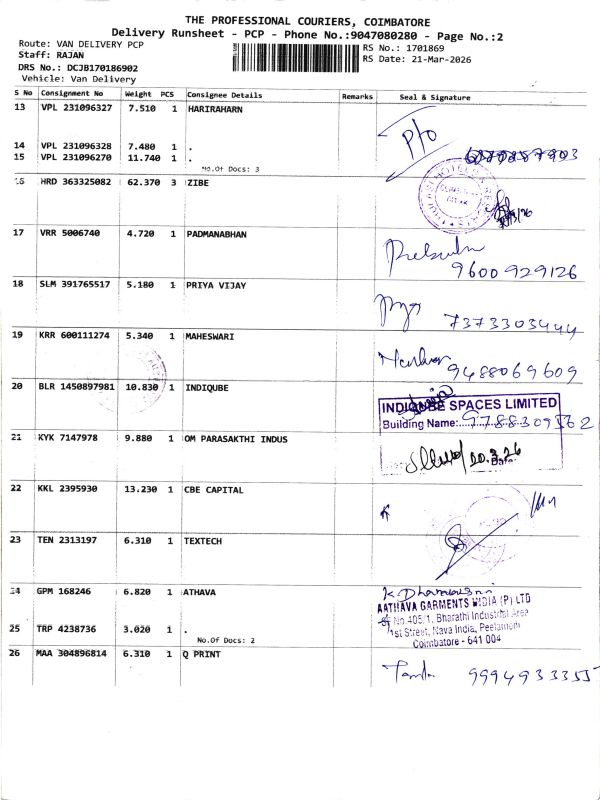 THE PROFESSIONAL COURIERS, COIMBATORE
Delivery Runsheet - PCP - Phone No.:9047080280 - Page No.:2
Route: VAN DELIVERY PCP
Staff: RAJAN
DRS No.: DCJB170186902
Vehicle: Van Delivery
RS No.: 1701869
RS Date: 21-Mar-2026
S No Consignment No Weight PCS Consignee Details Remarks Seal & Signature
13 VPL 231096327 7.510 1 HARIRAHARN
P/o
14 VPL 231096328 7.480 1 .
15 VPL 231096270 11.740 1 .
No.Of Docs: 3
16 HRD 363325082 62.370 3 ZIBE
17 VRR 5006740 4.720 1 PADMANABHAN
9600929126
18 SLM 391765517 5.180 1 PRIYA VIJAY
7373303444
19 KRR 600111274 5.340 1 MAHESWARI
9488069609
20 BLR 1450897981 10.830 1 INDIQUBE
INDIQUBE SPACES LIMITED
Building Name:
21 KYK 7147978 9.880 1 OM PARASAKTHI INDUS
20.3.26
22 KKL 2395930 13.230 1 CBE CAPITAL
23 TEN 2313197 6.310 1 TEXTECH
24 GPM 168246 6.820 1 ATHAVA
AATHAVA GARMENTS INDIA (P) LTD
No.405/1, Bharathi Industrial Area
1st Street, Nava India, Peelamedu
Coimbatore - 641 004
25 TRP 4238736 3.020 1 .
No.Of Docs: 2
26 MAA 304896814 6.310 1 Q PRINT
9994933355